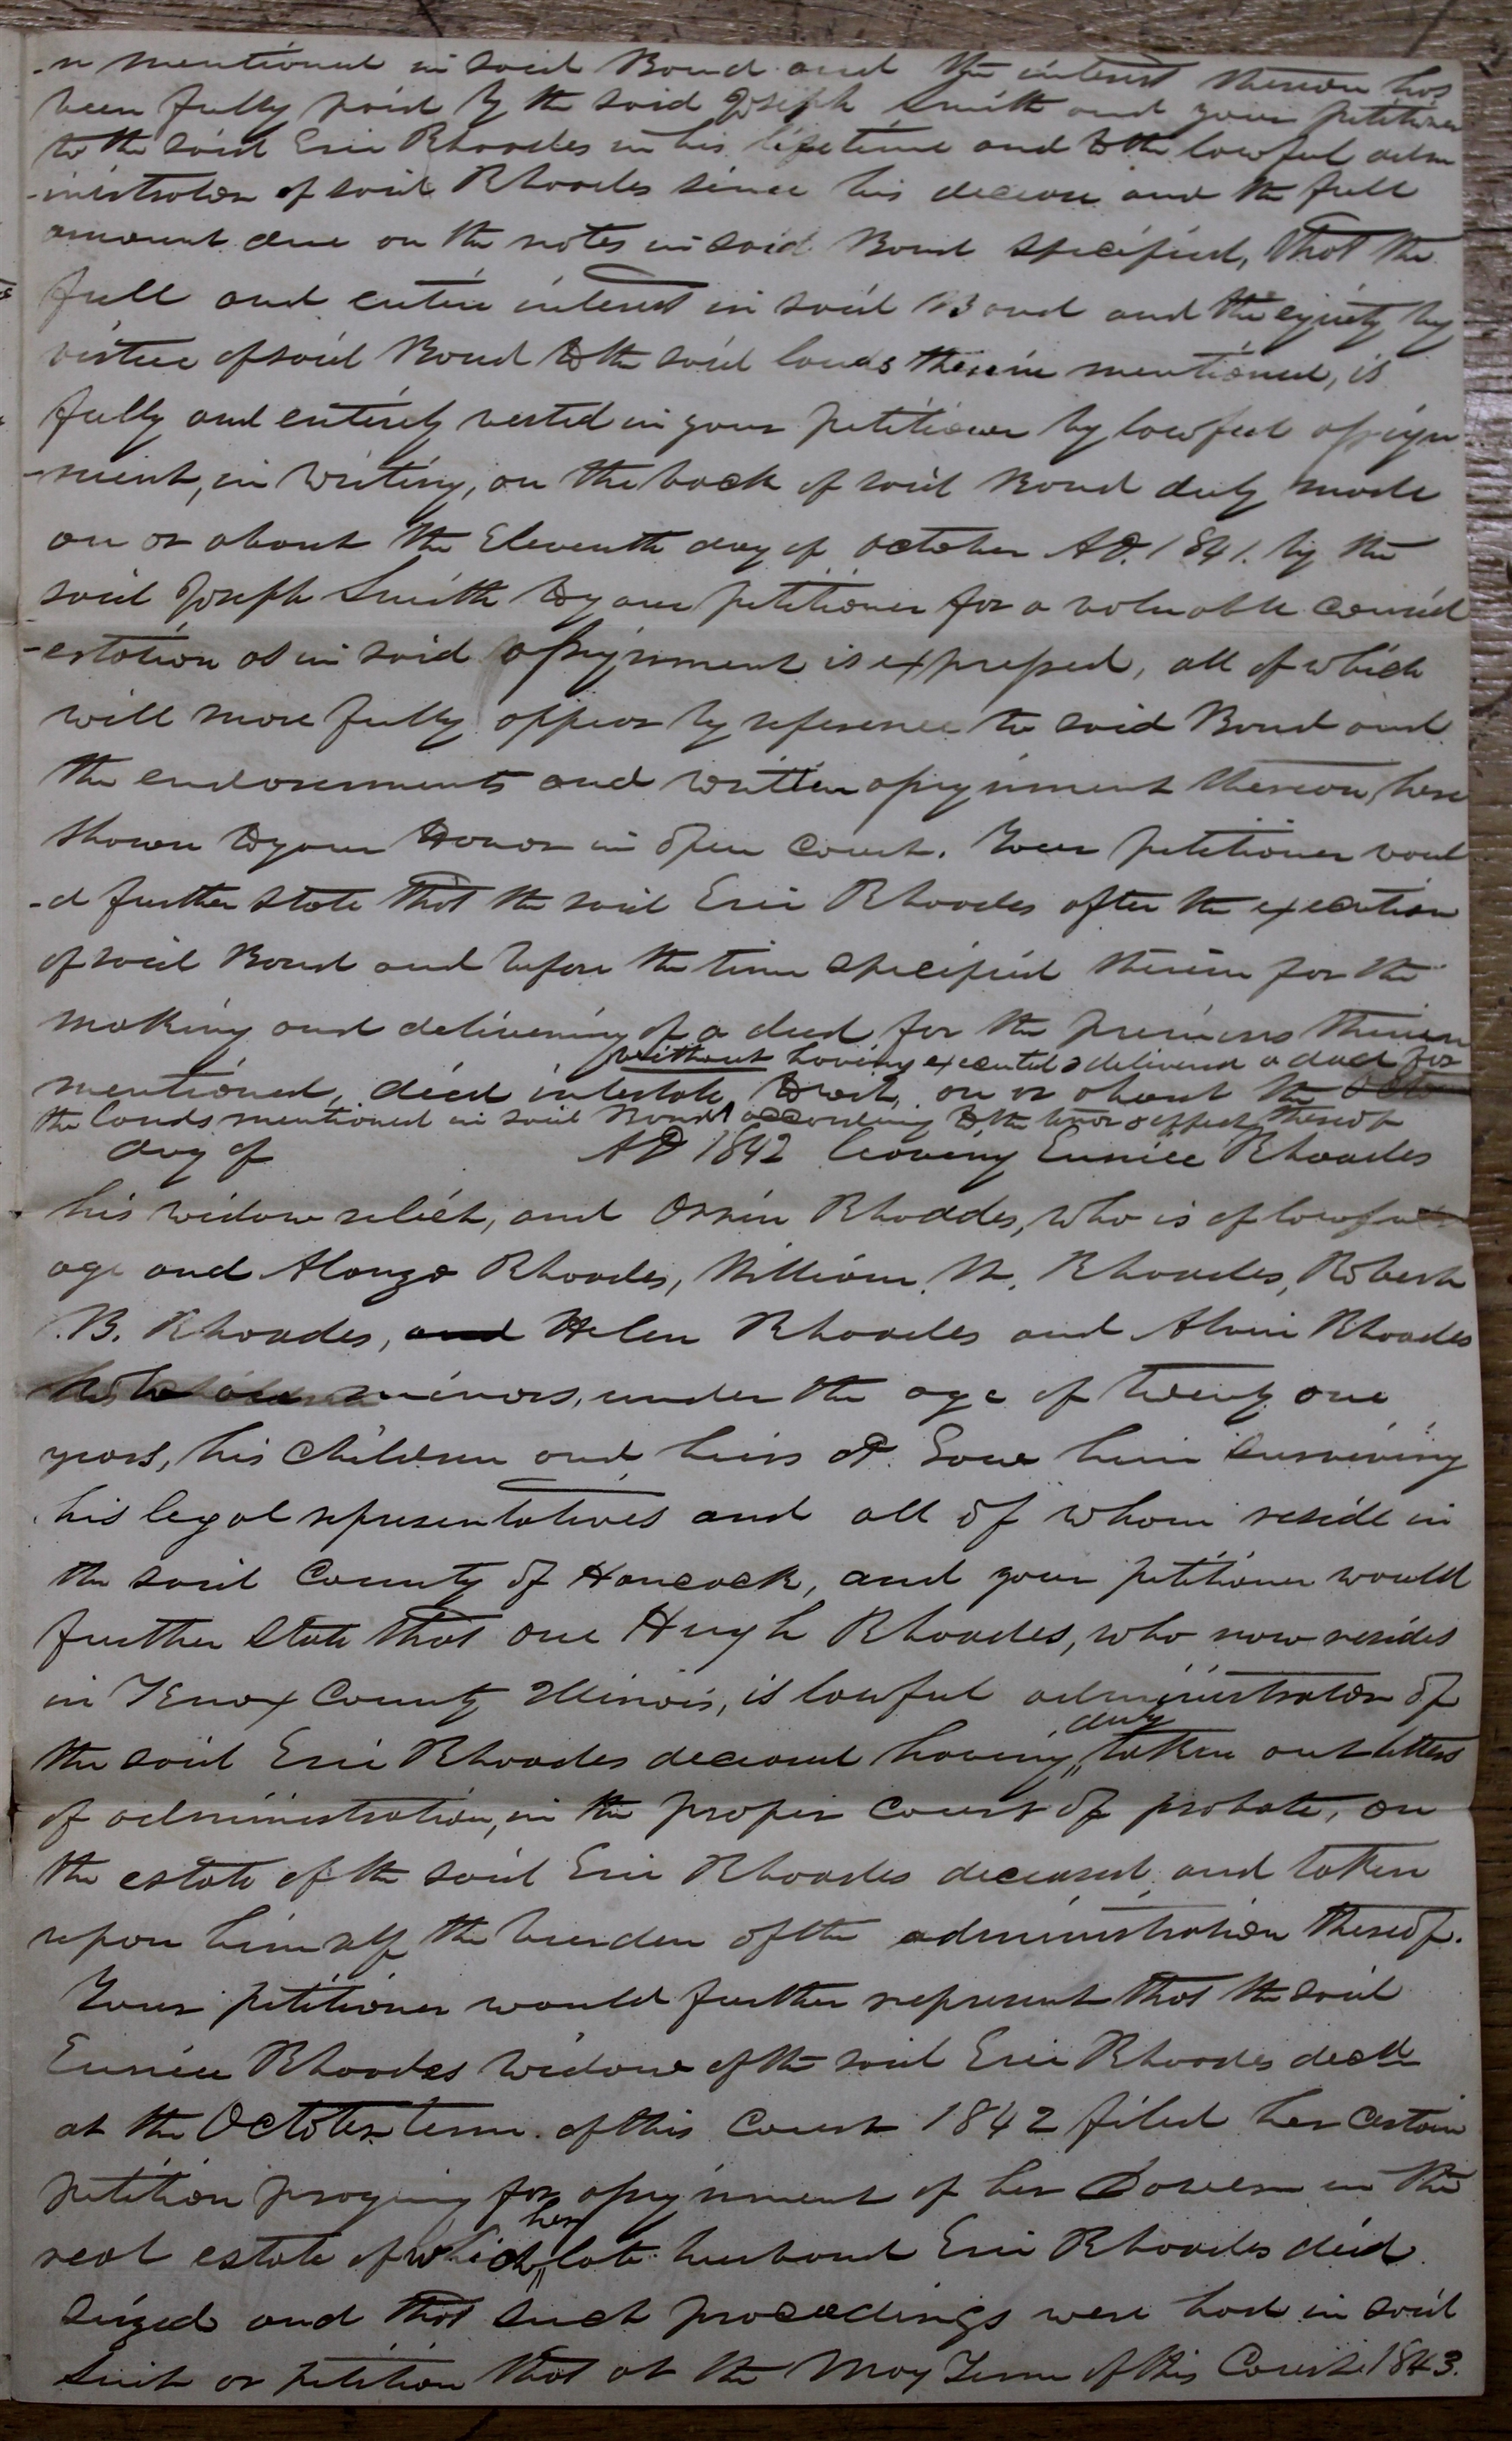 -n mentioned in said Bond and the interest thereon has
been fully paid by the said Joseph Smith and your petitioner
to the said Erie Rhoades in his lifetime and to the lawful adm
-inistrator of said Rhoades since his decease and the full
amount due on the notes in said Bond specified, That the
full and entire interest in said Bond and the equity by
virtue of said Bond to the said lands therein mentioned, is
fully and entirely vested in your petitioner by lawful assign
-ment, in writing, on the back of said Bond duly made
on or about the Eleventh day of October AD. 1841. by the
said Joseph Smith to your petitioner for a valuable consid
-eration as in said assignment is expressed, all of which
will more fully appear by reference to said Bond and
the endorsements and written assignment thereon, here
shown to your Honor in open Court. Your petitioner woul
-d further state that the said Erie Rhoades after the execution
of said Bond and before the time specified therein for the
making and delivering of a deed for the premises therein
without having executed & delivered a deed for
mentioned, died intestate, to wit, on or about the
the lands mentioned in said Bond according to the tenor & effect thereof
day of AD 1842 leaving Eunice Rhoades
his widow relict, and Orrin Rhoades, who is of lawful
age and Alonzo Rhoades, William W. Rhoades, Robert
B. Rhoades, and Helen Rhoades and Alvin Rhoades
minors, under the age of twenty one
years, his children and heirs at Law him surviving
his legal representatives and all of whom reside in
the said County of Hancock, and your petitioner would
further state that one Hugh Rhoades, who now resides
in Knox County Illinois, is lawful administrator of
duly
the said Erie Rhoades deceased having taken out letters
of administration, in the proper Court of probate, on
the estate of the said Erie Rhoades deceased, and taken
upon himself the burden of the administration thereof.
Your petitioner would further represent that the said
Eunice Rhoades widow of the said Erie Rhoades decd
at the October term of this Court 1842 filed her certain
petition praying for assignment of her Dower in the
her
real estate of which late husband Erie Rhoades died
seized and that such proceedings were had in said
suit or petition that at the May Term of this Court 1843.